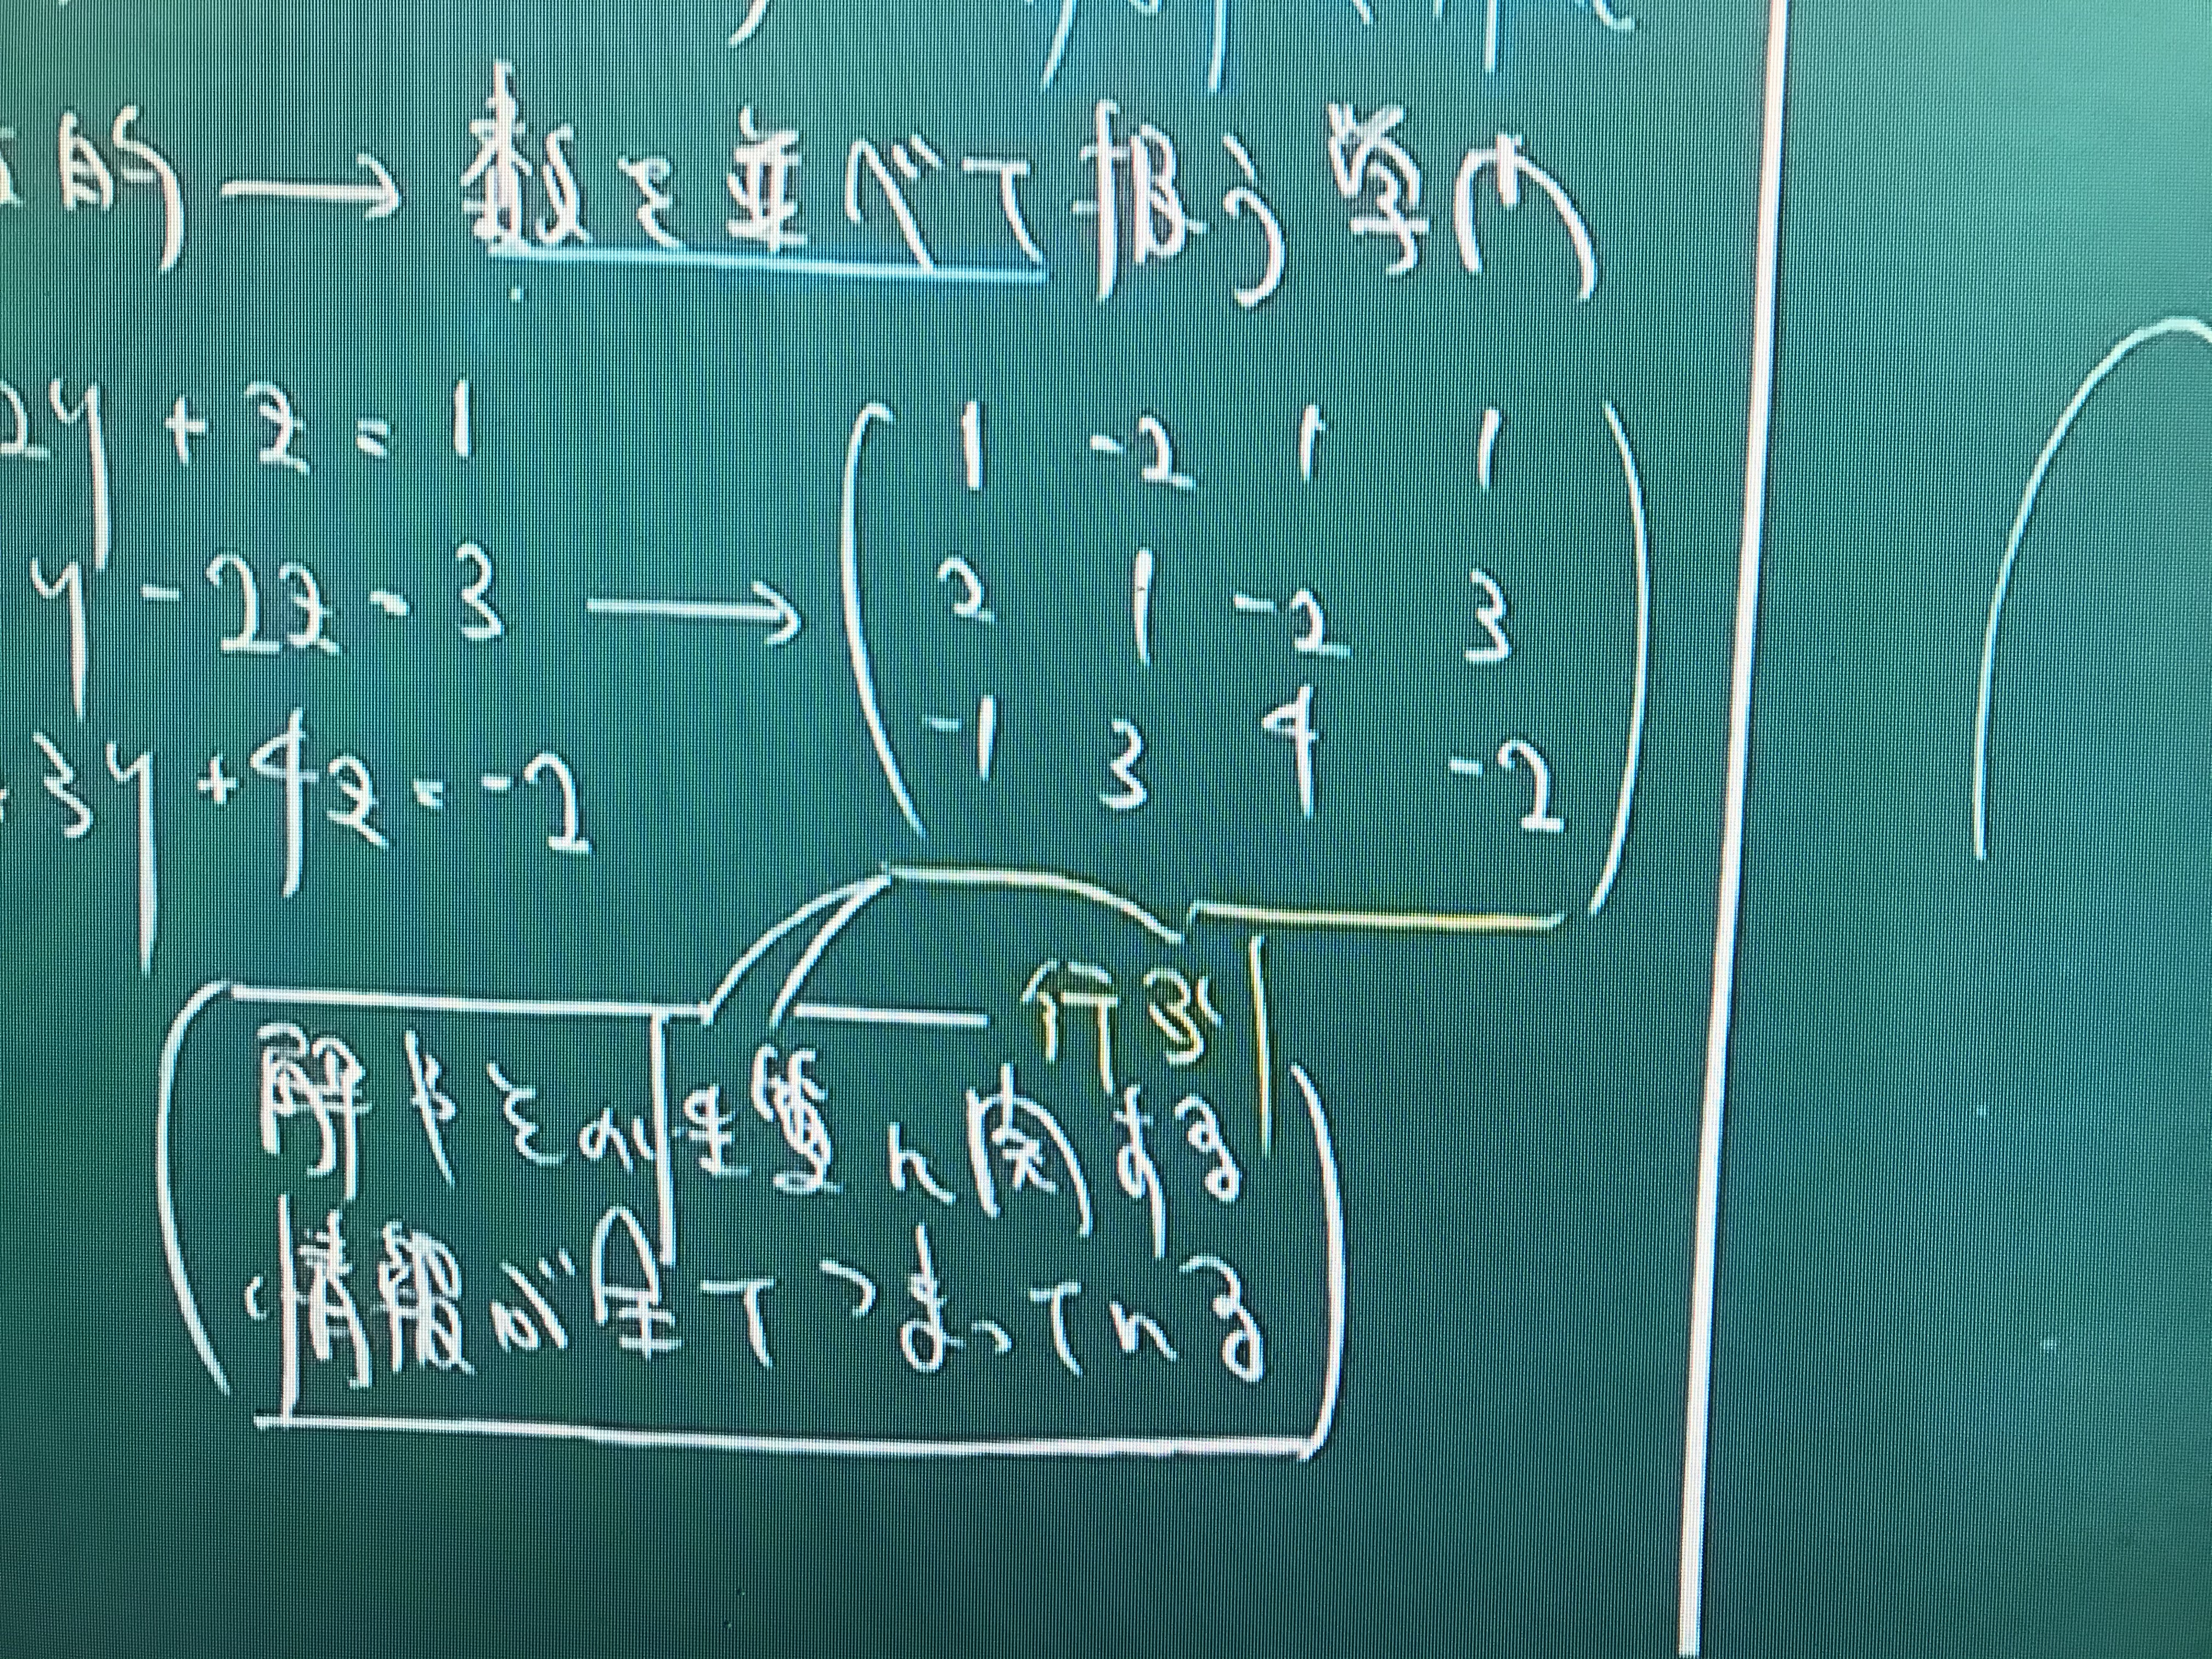 的 → 数を並べて扱う学問
2y + z = 1
y - 2z = 3 →
3y + 4z = -2
1 -2 1 1
2 1 -2 3
-1 3 4 -2
行列
解やその性質に関する
情報が全てつまっている